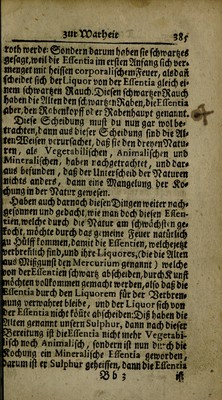 zur Warheit 385
roth werde: Sondern darum haben sie schwartzes
gesagt, weil die Essentia im ersten Anfang sich ver-
menget mit heissen corporalischem Feuer, als dañ
scheidet sich der Liquor von der Essentia gleich ei-
nem schwartzen Rauch. Diesen schwartzen Rauch
haben die Alten den schwartzen Raben, die Essentia
aber, den Rabenkopff oder Rabenhaupt genannt.
Diese Scheidung must du nun gar wol be-
trachten, dann aus dieser Scheidung sind die Al-
ten Weisen verursachet, daß sie den dreyen Natu-
ren, als Vegetabilischen, Animalischen und
Mineralischen, haben nachgetrachtet, und dar-
aus befunden, daß der Unterscheid der Naturen
nichts anders, dann eine Mangelung der Ko-
chung in der Natur gewesen.
Haben auch darnach diesen Dingen weiter nach-
gesonnen und gedacht, wie man doch diesen Essen-
tien, welche durch die Natur am schwächsten ge-
kocht, möchte durch das gemeine Feuer natürlich
zu Hülff kommen, damit die Essentien, welche jetzt
verbrenlich sind, und ihre Liquores, (die die Alten
aus Mißgunst den Mercurium genannt) welche
von der Essentien schwartz abscheiden, durch Kunst
möchten vollkommen gemacht werden, also daß die
Essentia durch den Liquorem für der Verbren-
nung verwahret bliebe, und der Liquor sich von
der Essentia nicht köñte abscheiden: Diß haben die
Alten genannt unsern Sulphur, dann nach dieser
Bereitung ist die Essentia nicht mehr Vegetabi-
lisch noch Animalisch, sondern ist nun durch die
Kochung ein Mineralische Essentia geworden,
Darum ist er Sulphur geheissen, dann die Essentia
B b 3 ist